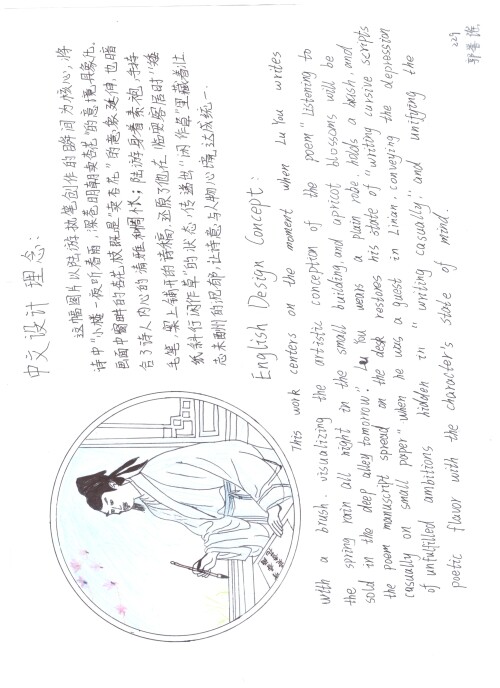 中文设计理念:
这幅图片以陆游执笔创作的瞬间为核心,将
诗中"小楼一夜听春雨,深巷明朝卖杏花"的意境具象化.
画面中窗畔的杏花枝既是"卖杏花"的意象延伸,也暗
合了诗人内心的清雅和惆怅;陆游身着素袍,手持
毛笔,案上铺开的诗稿,还原了他在临安客居时"矮
纸斜行闲作草"的状态,传递出"闲作草"里藏着壮
志未酬的沉郁,让诗意与人物心境达成统一.
English Design Concept:
This work centers on the moment when Lu You writes
with a brush, visualizing the artistic conception of the poem "Listening to
the spring rain all night in the small building, and apricot blossoms will be
sold in the deep alley tomorrow." Lu You wears a plain robe, holds a brush, and
the poem manuscript spread on the desk restores his state of "writing cursive scripts
casually on small paper" when he was a guest in Linan, conveying the depression
of unfulfilled ambitions hidden in "writing casually," and unifying the
poetic flavor with the character's state of mind.
229